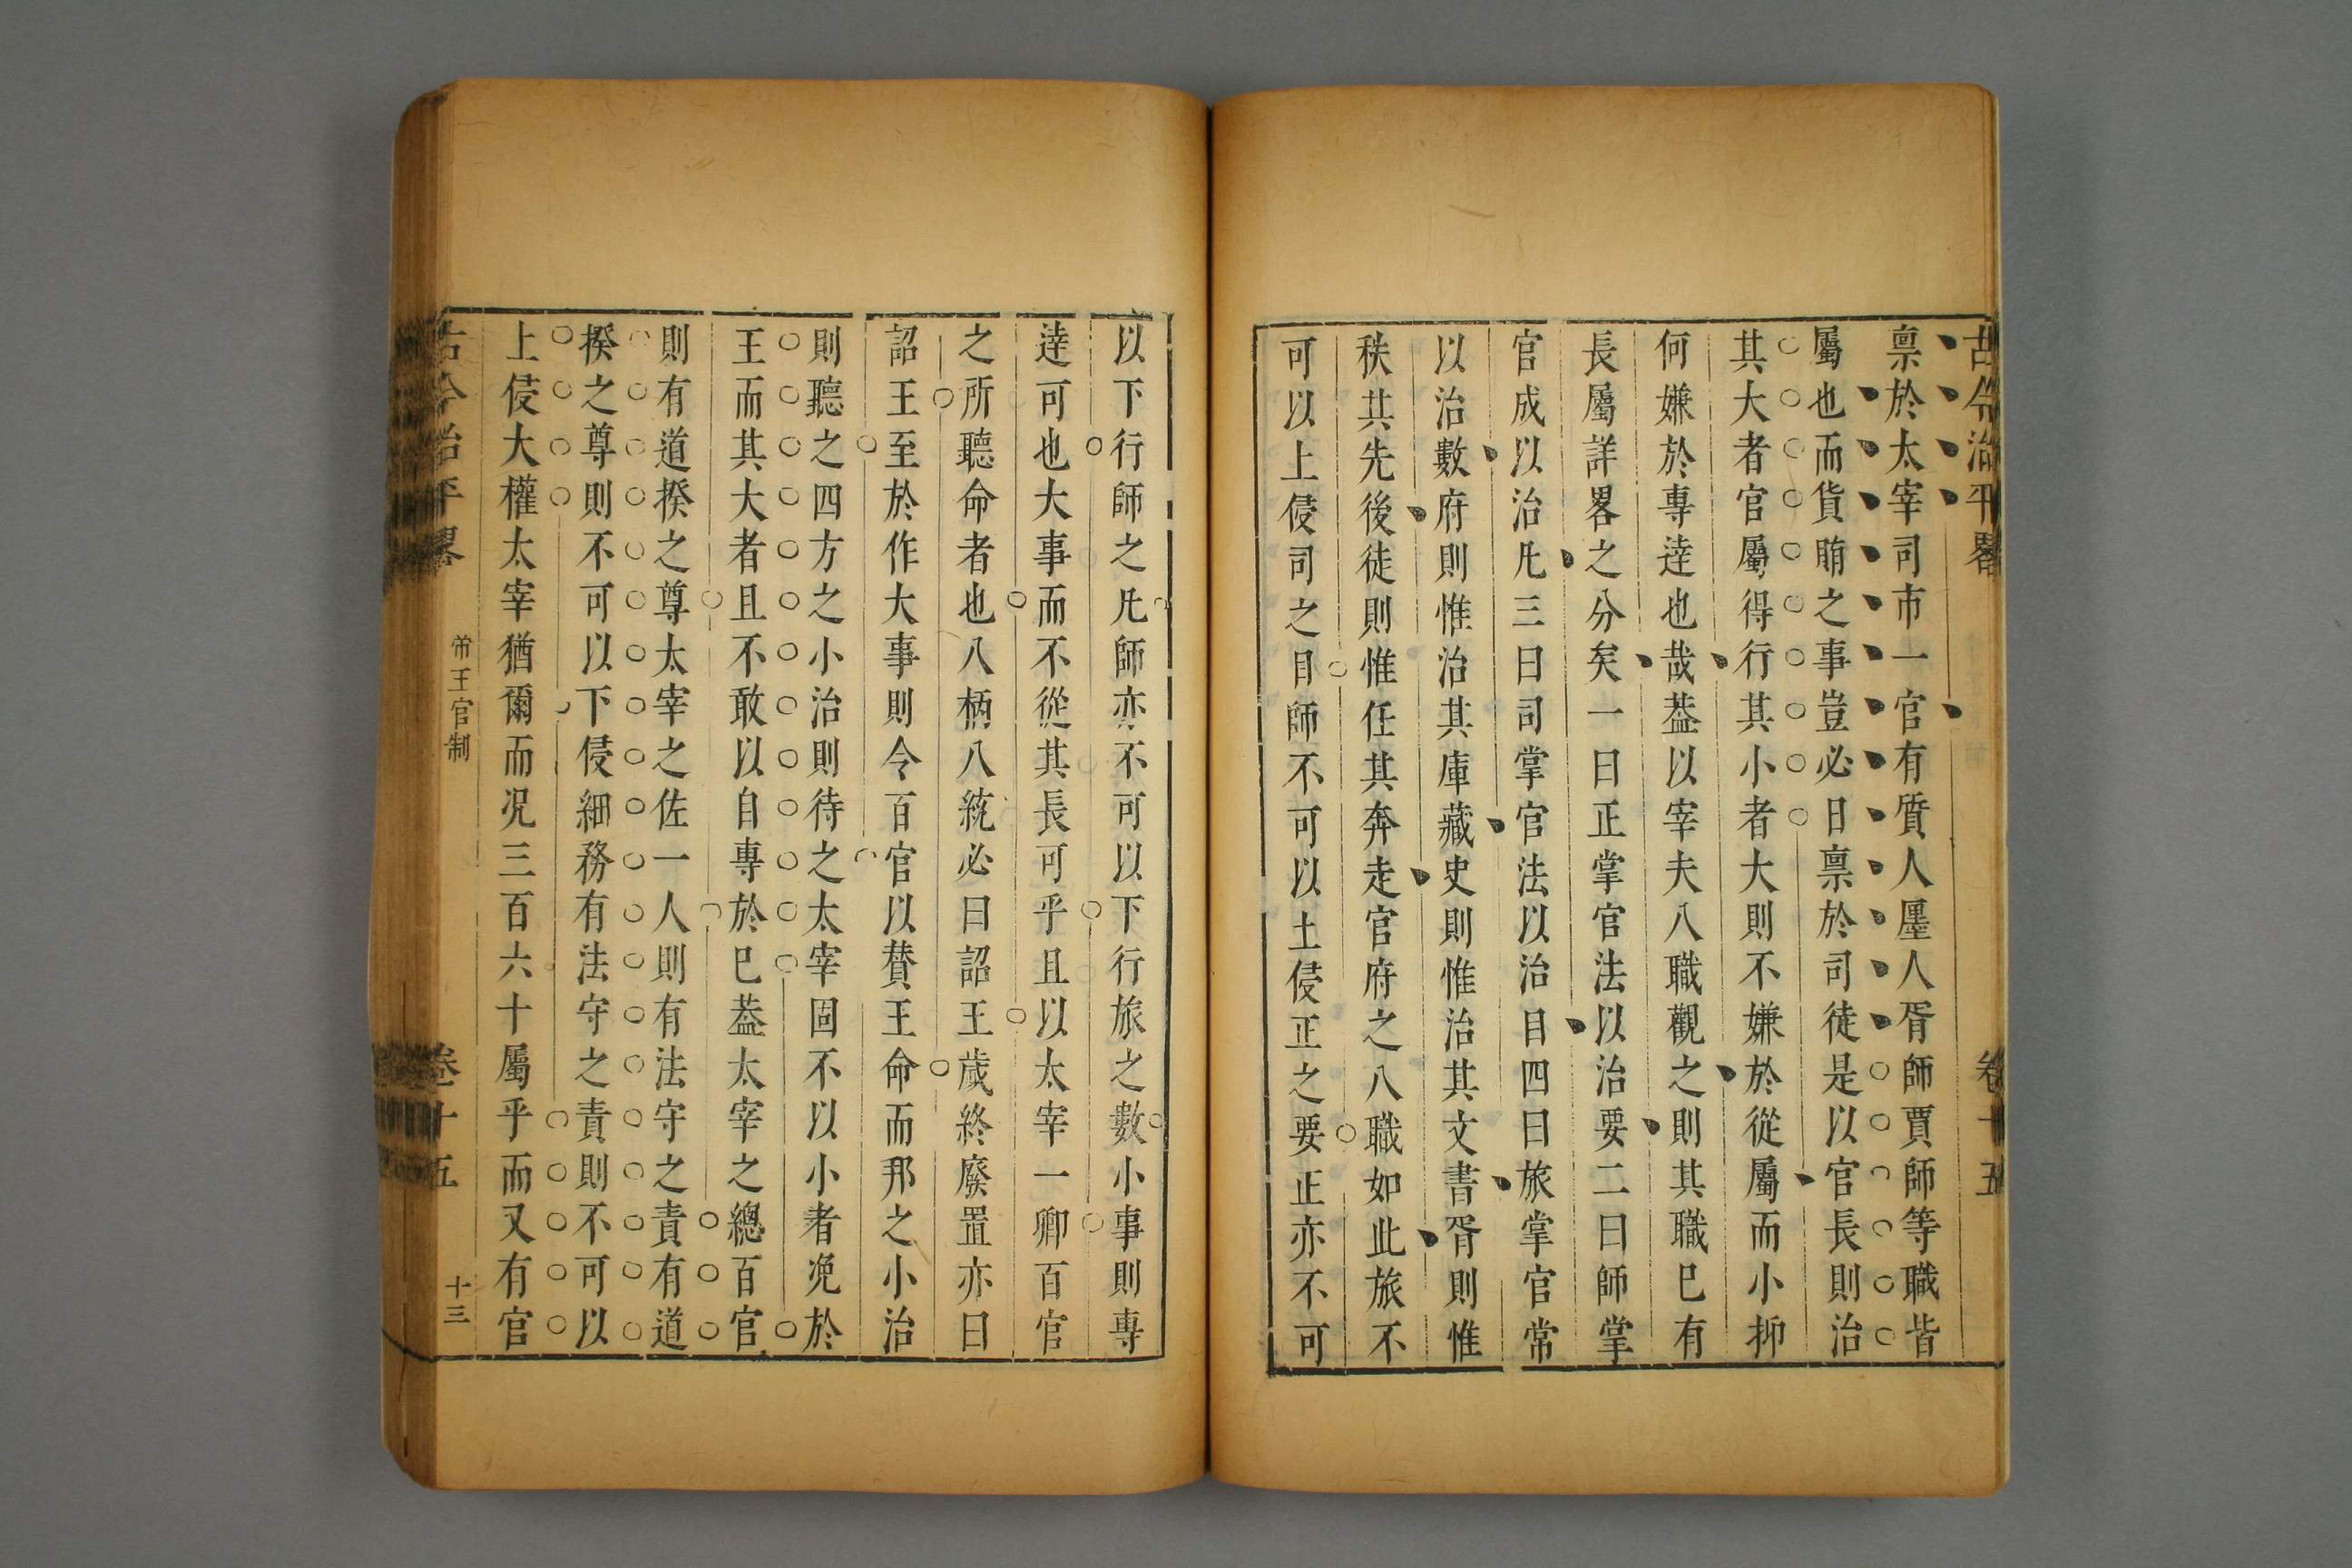 古今治平畧 卷十五
禀於太宰司市一官有質人廛人胥師賈師等職皆
屬也而貨賄之事豈必日禀於司徒是以官長則治
其大者官屬得行其小者大則不嫌於從屬而小抑
何嫌於專逹也哉葢以宰夫八職觀之則其職巳有
長屬詳畧之分矣一曰正掌官法以治要二曰師掌
官成以治凡三曰司掌官法以治目四曰旅掌官常
以治數府則惟治其庫藏史則惟治其文書胥則惟
秩其先後徒則惟任其奔走官府之八職如此旅不
可以上侵司之目師不可以土侵正之要正亦不可
以下行師之凡師亦不可以下行旅之數小事則專
逹可也大事而不從其長可乎且以太宰一卿百官
之所聽命者也八柄八統必曰詔王歲終廢置亦曰
詔王至於作大事則令百官以贊王命而邦之小治
則聽之四方之小治則待之太宰固不以小者凂於
王而其大者且不敢以自專於巳葢太宰之總百官
則有道揆之尊太宰之佐一人則有法守之責有道
揆之尊則不可以下侵細務有法守之責則不可以
上侵大權太宰猶爾而况三百六十屬乎而又有官
古今治平畧 帝王官制 卷十五 十三